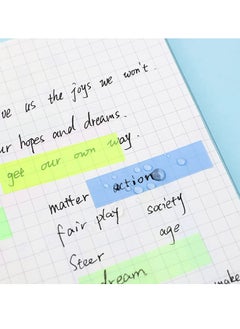 ve us the joys we won't.
ur hopes and dreams.
get our own way.
matter action
fair play society
Steer age
dream